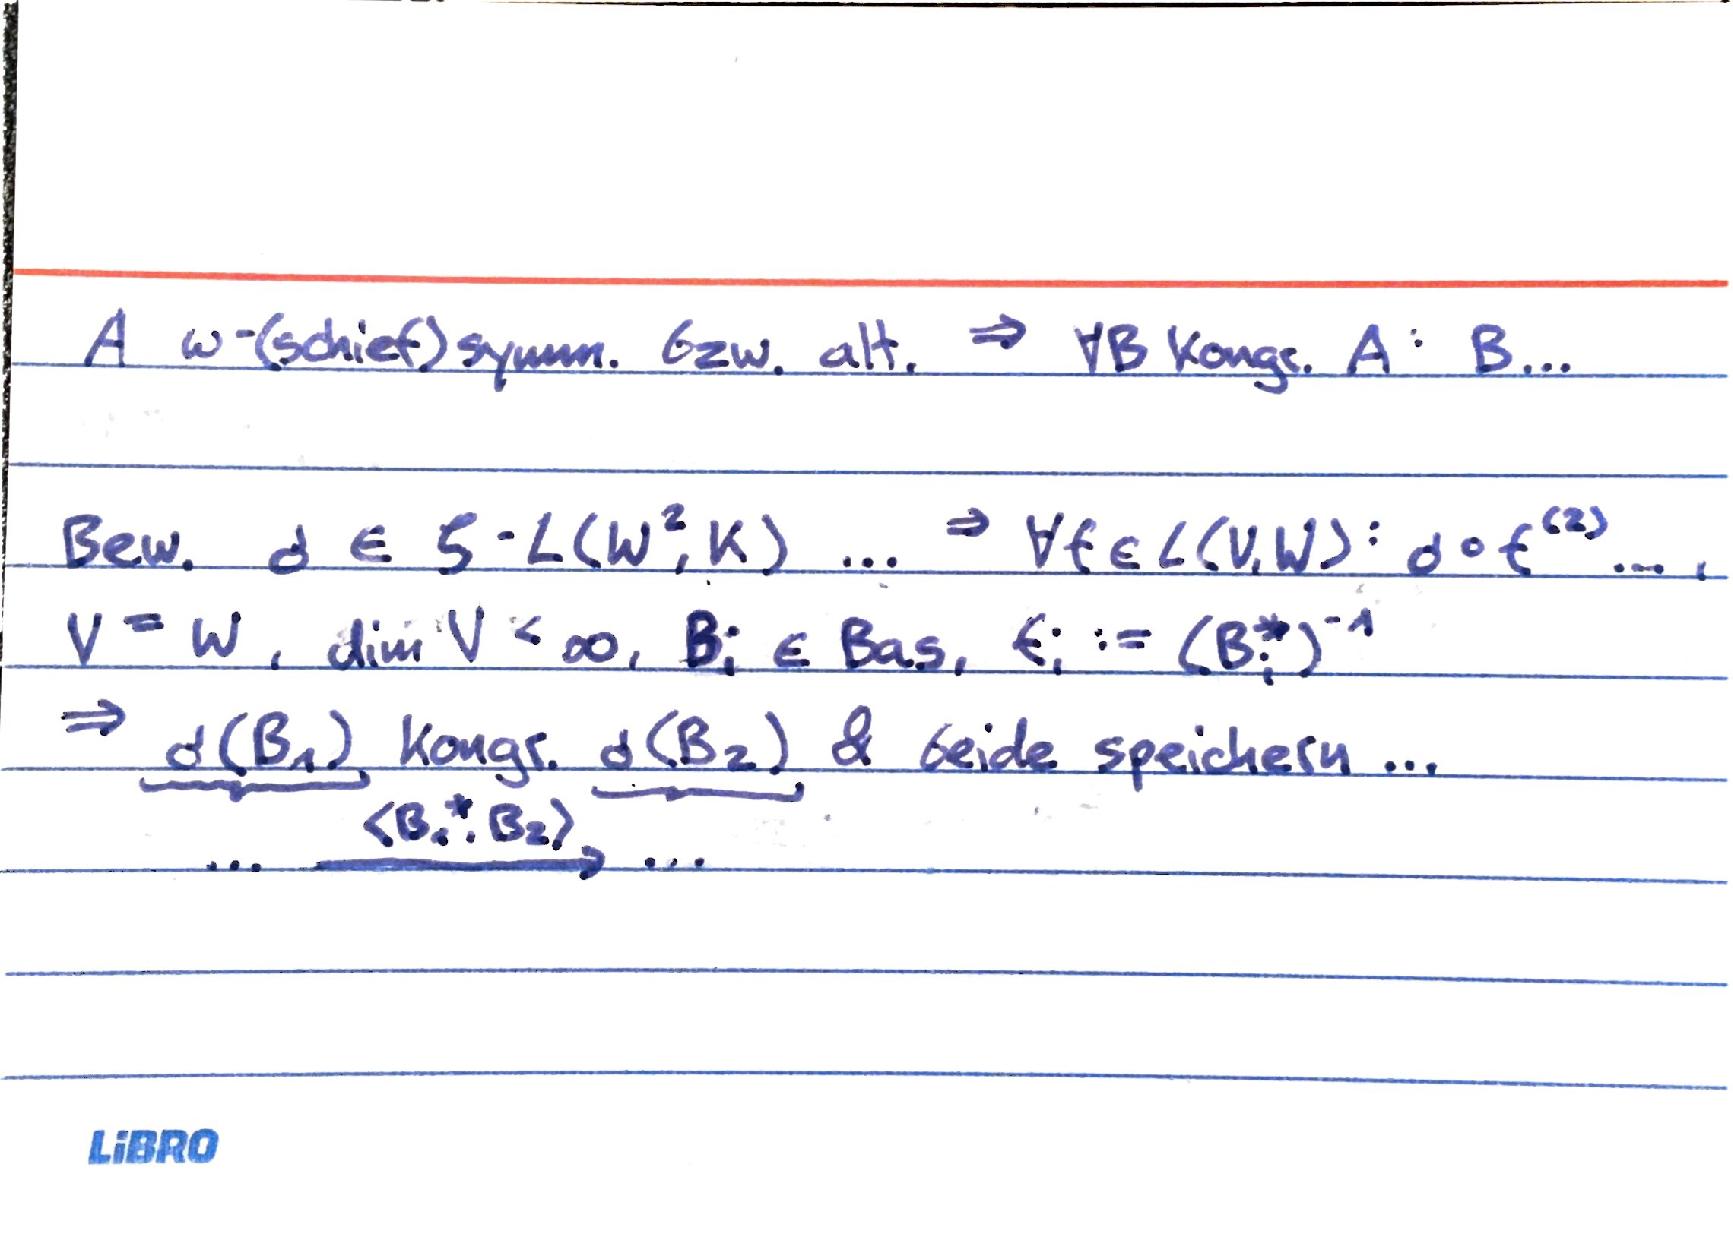 A ω-(schief)symm. bzw. alt. ⇒ ∀B Kongr. A: B...
Bew. σ ∈ ζ-L(W²,K) ... ⇒ ∀f∈L(V,W): σ∘f⁽²⁾...,
V = W, dim V < ∞, Bᵢ ∈ Bas, fᵢ := (Bᵢ*)⁻¹
⇒ σ(B₁) Kongr. σ(B₂) & beide speichern ...
⟨B₁*:B₂⟩
... → ...
LiBRO